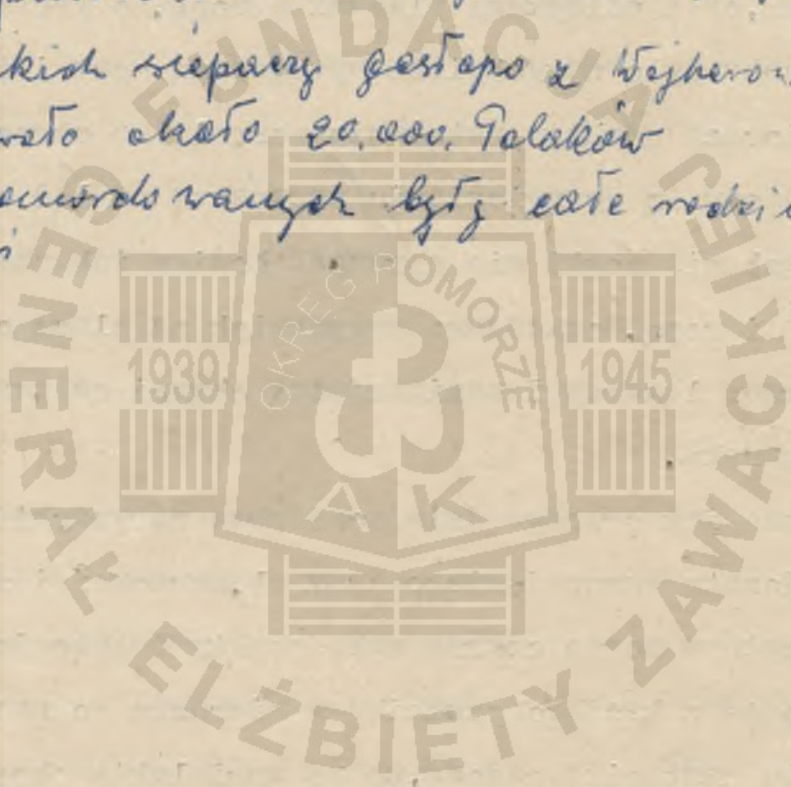 kich siepaczy gestapo z Wejherow
wało około 20.000. Polaków
omordowanych były całe rodzi
i
FUNDACJA GENERAŁ ELŻBIETY ZAWACKIEJ
OKRĘG POMORZE
1939 1945
AK